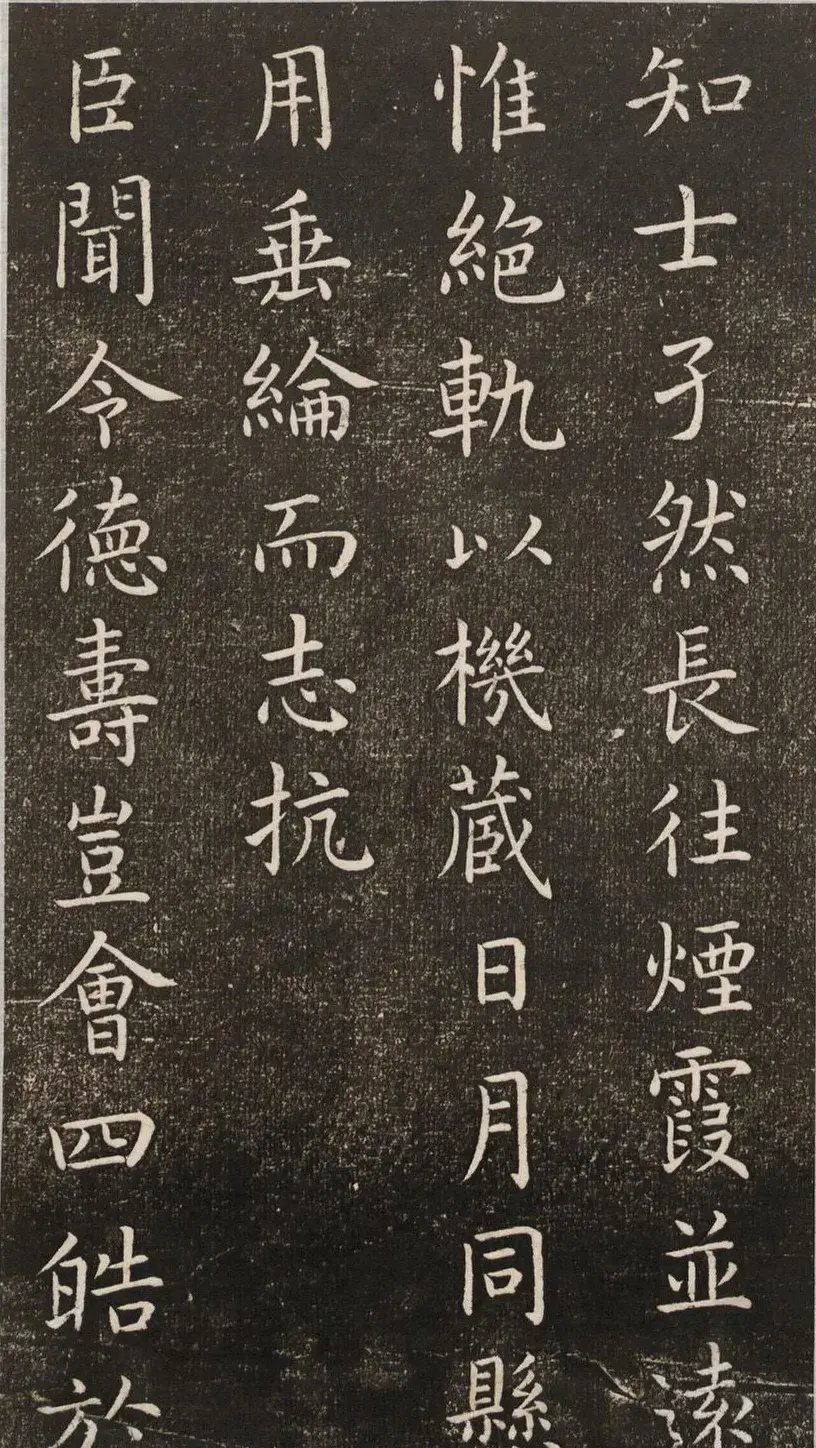 知士孑然長往煙霞並遠
惟絕軌以機蔵日月同懸
用垂綸而志抗
臣聞令德壽豈會四皓於